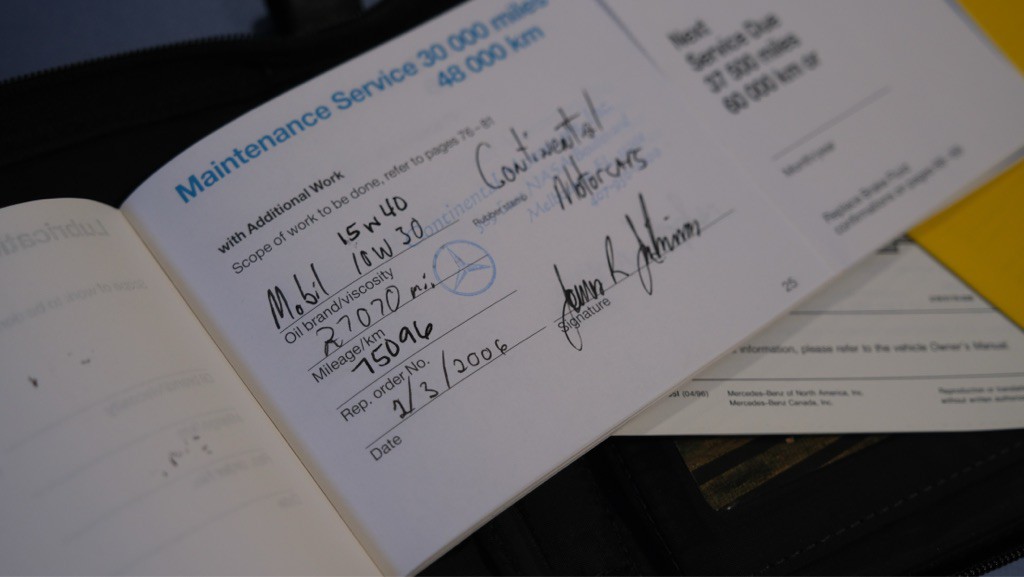 Maintenance Service 30 000 miles
48 000 km
with Additional Work
Scope of work to be done, refer to pages 76 – 81
15W40
Mobil 10W30
Oil brand/viscosity
27070 mi.
Mileage/km
75096
Rep. order No.
2/3/2006
Date
Continental
Motorcars
Rubber stamp
Signature
25
Next
Service Due
37 500 miles
60 000 km or
Month/year
Replace Brake Fluid
confirmations on pages
information, please refer to the vehicle Owner's Manual.
(04/96)
Mercedes-Benz of North America, Inc.
Mercedes-Benz Canada, Inc.
Reproduction or
without written
Lubricati